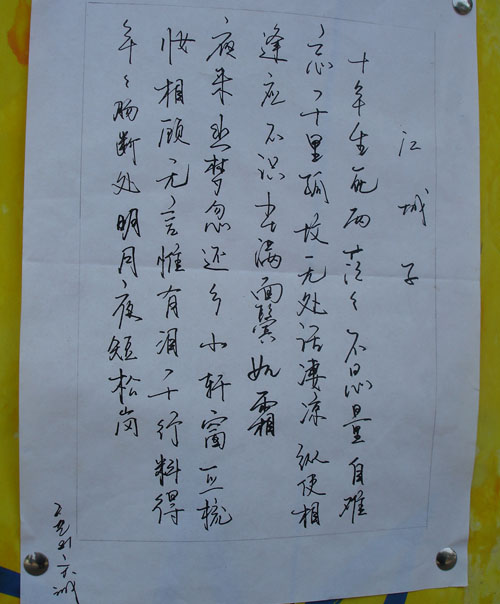 江城子
十年生死两茫々不思量自难
忘千里孤坟无处话凄凉纵使相
逢应不识尘满面鬓如霜
夜来幽梦忽还乡小轩窗正梳
妆相顾无言惟有泪千行料得
年々肠断处明月夜短松岗